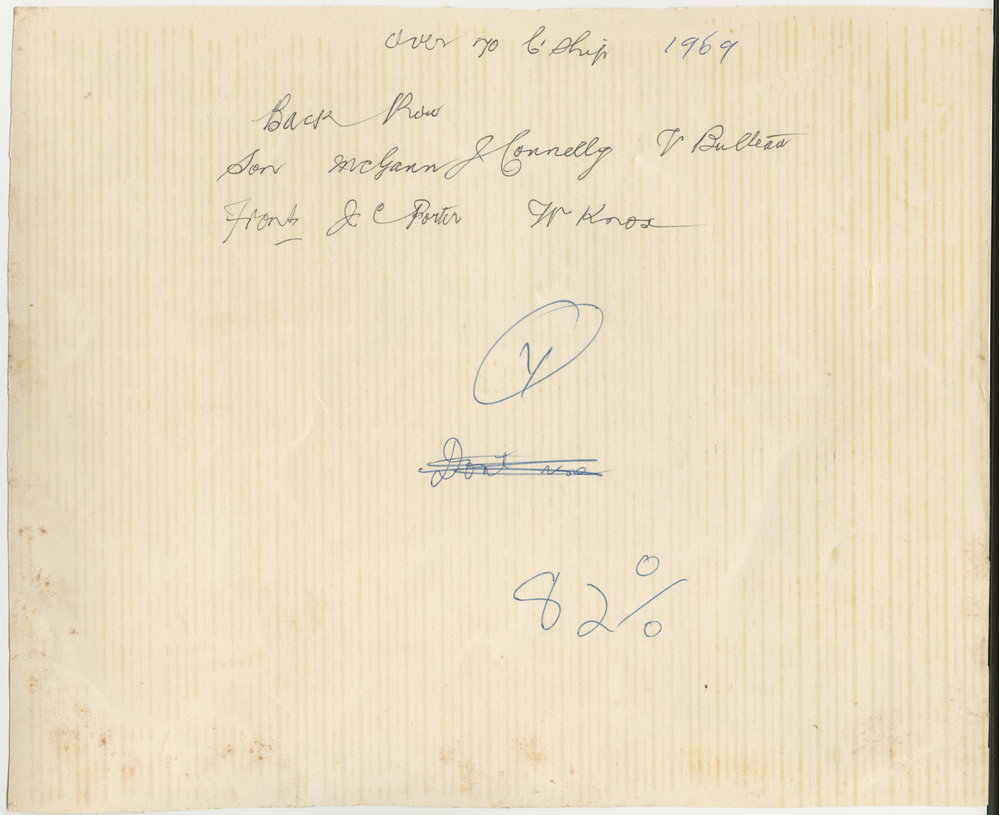 Over 70 C'ship 1969
Back Row
Son McGann J Connelly V
Front J C Porter W Knox
Y
Dont use
82%